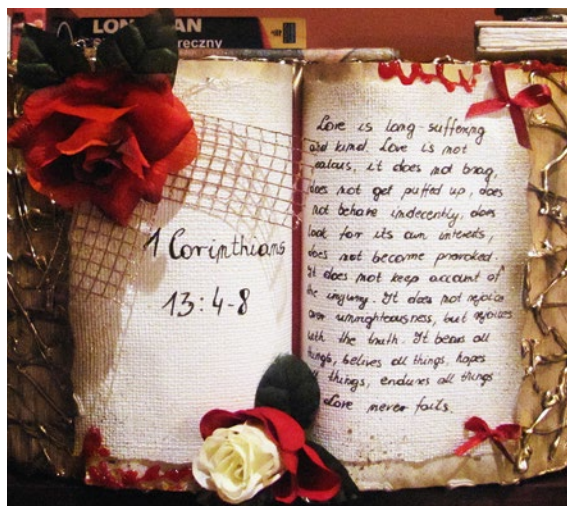 LON AN
ręczny
1 Corinthians
13:4-8
Love is long-suffering
and kind. Love is not
ealous, it does not brag,
does not get puffed up, does
not behave indecently, does
look for its own interests,
does not become provoked.
It does not keep account of
the injury. It does not rejoice
over unrighteousness, but rejoices
with the truth. It bears all
things, belives all things, hopes
all things, endures all things
Love never fails.